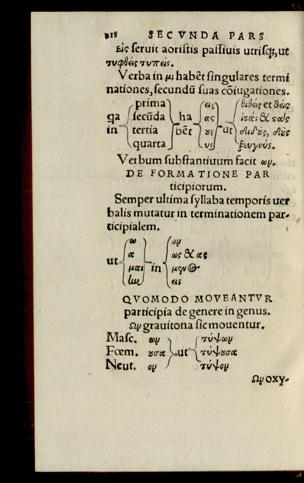 218 SECVNDA PARS
εις seruit aoristis passiuis utrisq;, ut
τυφθείς τυπείς.
Verba in μι habẽt singulares termi
nationes, secundũ suas cõiugationes.
qa in prima secũda tertia quarta ha bẽt εις ας ους υς ut τιθείς et θείς ἱσάς & σάς διδούς, δούς ζευγνύς.
Verbum substantiuum facit ων.
DE FORMATIONE PAR
ticipiorum.
Semper ultima syllaba temporis uer
balis mutatur in terminationem par-
ticipialem.
ut ω α μαι in ων ως & ας μενος εις
QVOMODO MOVEANTVR
participia de genere in genus.
Ων grauitona sic mouentur.
Masc. ων τύψων
Fœm. ουσα ut τύψουσα
Neut. ον τύψον
Ων oxy-